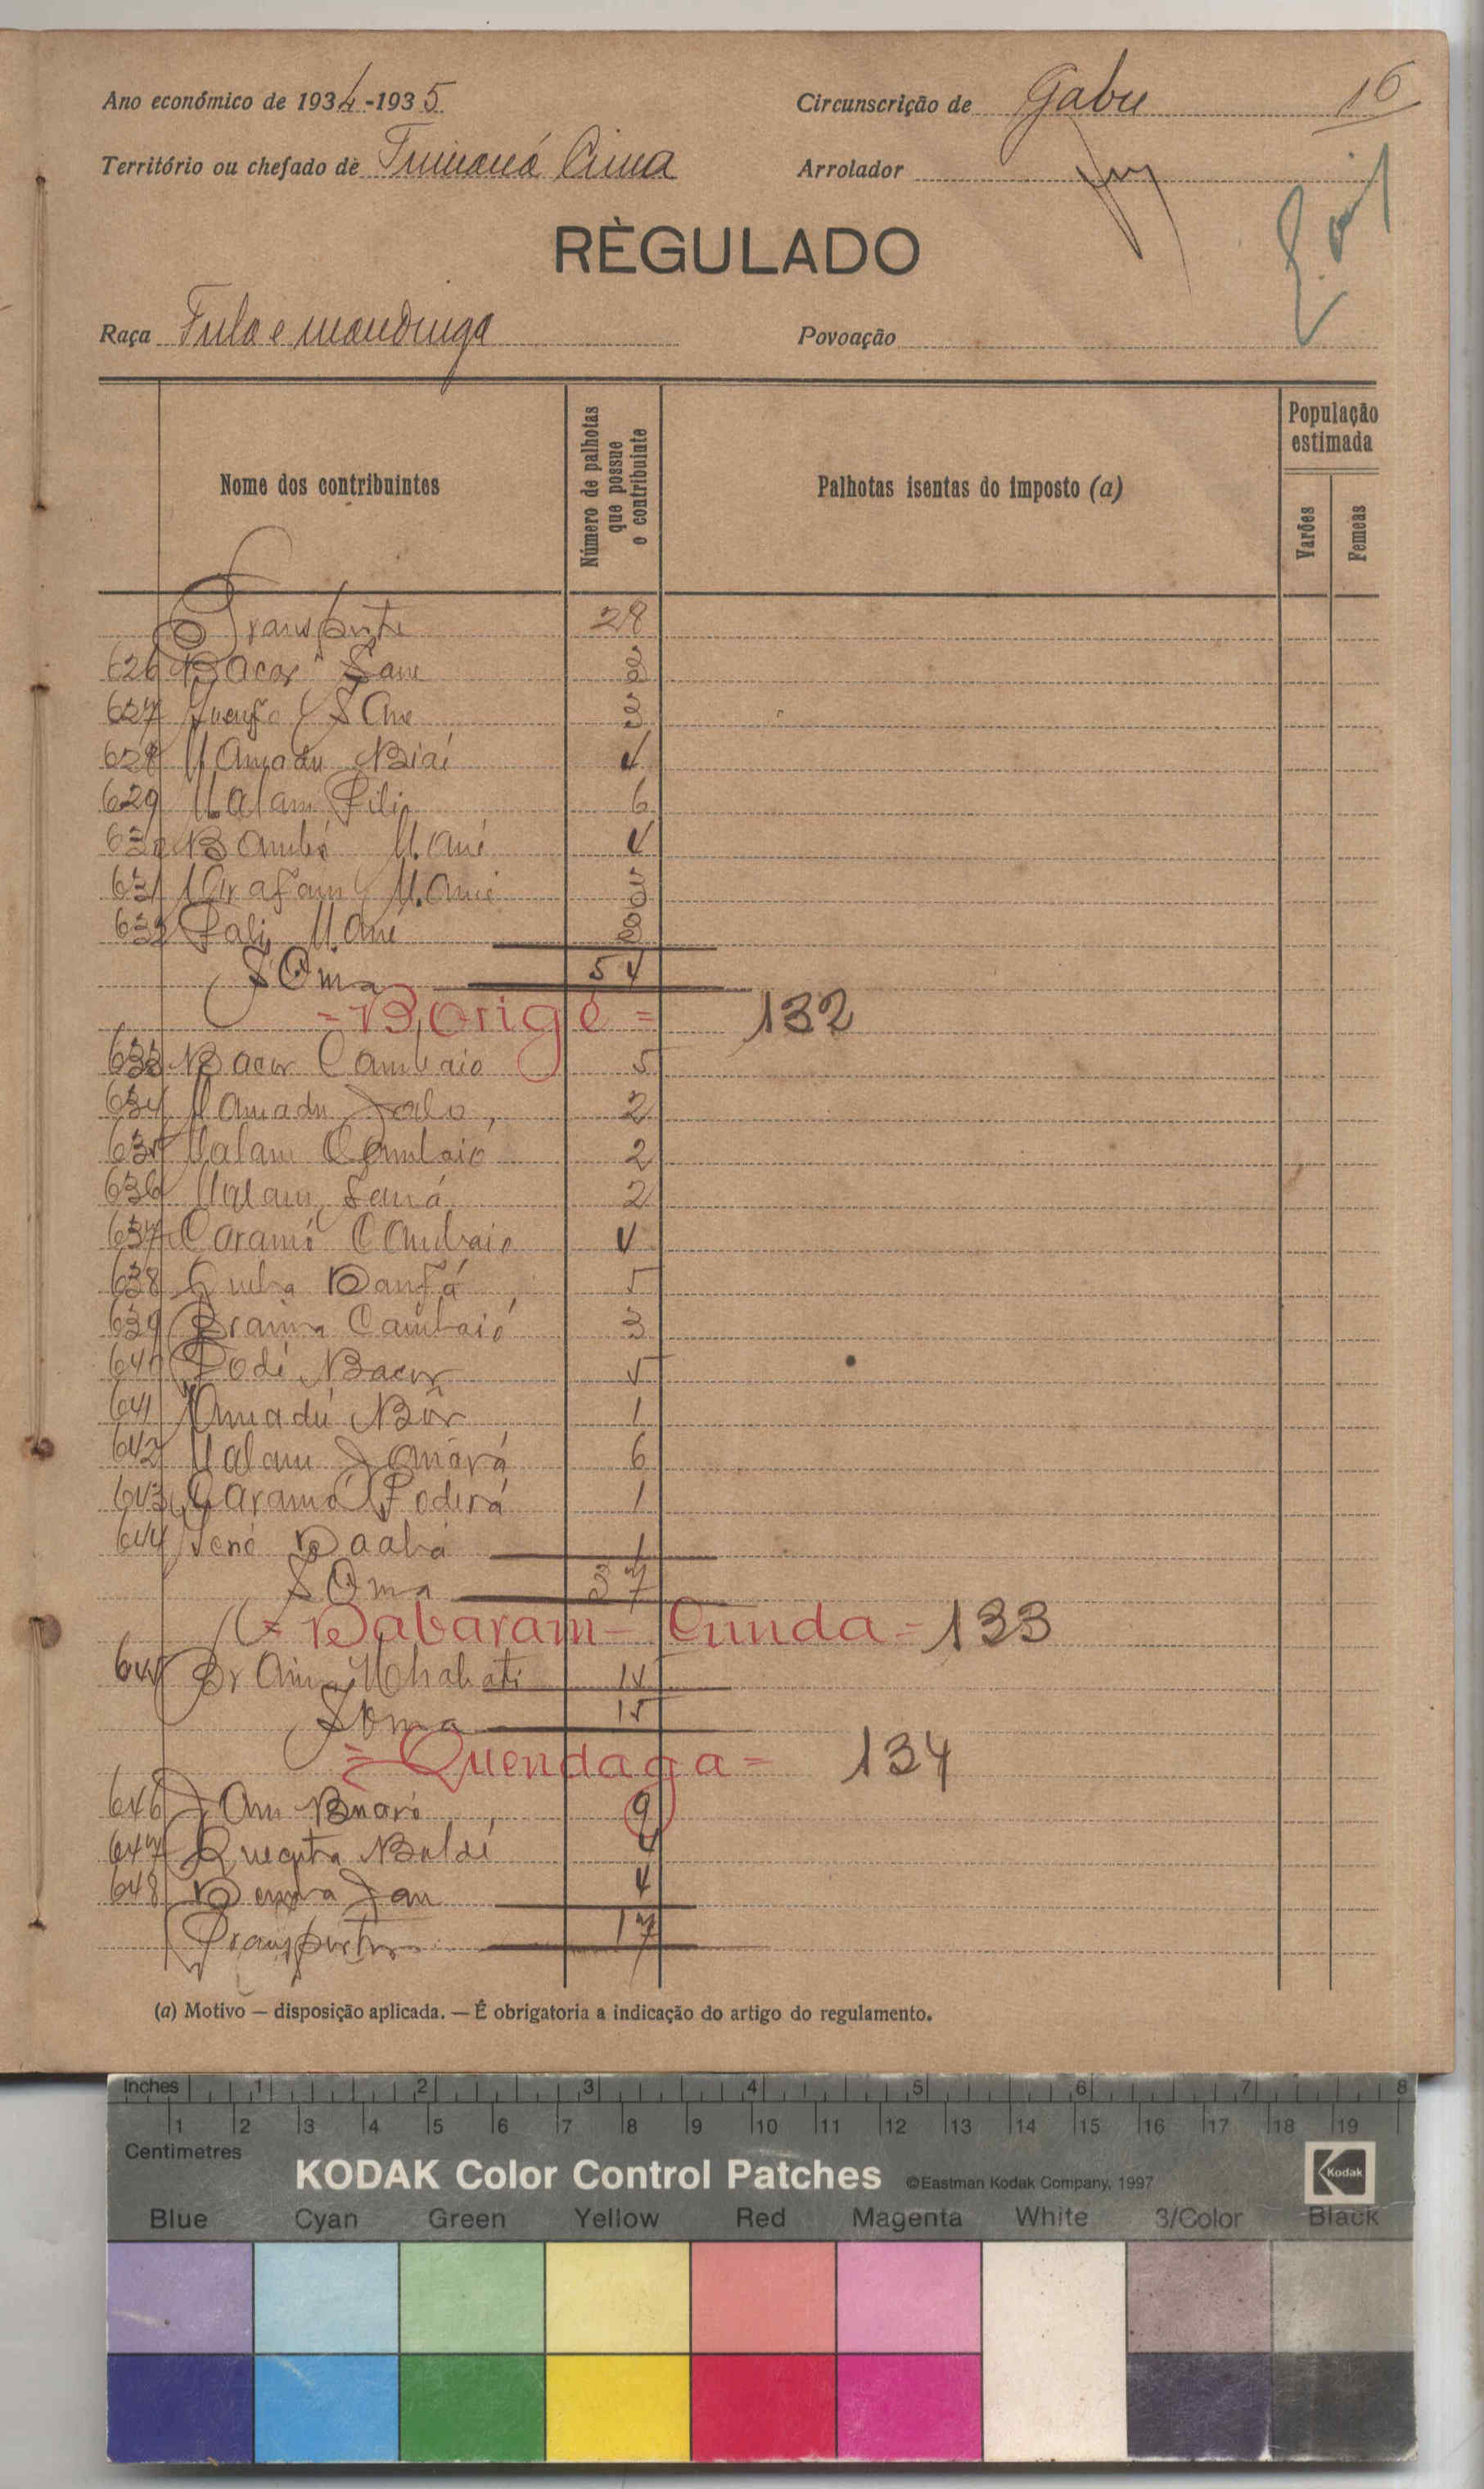 Ano económico de 1934-1935 Circunscrição de Gabu 16
Território ou chefado de Tumaná Cima Arrolador
RÈGULADO
Raça Fula e mandinga Povoação
Nome dos contribuintes
Número de palhotas que possue o contribuinte
Palhotas isentas do imposto (a)
População estimada
Varões
Femeas
Transporte 28
626 Bacar Sane 3
627 Sane 3
628 Mamadu Biai 4
629 Malam Fili 6
630 Bambó Mané 4
631 Arafam Mané
632 Mané
Soma 54
= Borigé = 132
633 Bacar Cambaio 5
634 Mamadu Jalo 2
635 Malam Cambaio 2
636 Malam Saná 2
637 Caramó Cambaio 4
638 Danfá 5
639 Braima Cambaió 3
640 Fodé Bacar 5
641 Amadú Bôr 1
642 Malam 6
643 Caramó Foderá 1
644 1
Soma 37
= Dabaram - Cunda = 133
645 Braima 15
Soma 15
= Quendaga = 134
646 Buaró 9
647 Quecuta Baldé 4
648 Demba Jau 4
Transporte 17
(a) Motivo — disposição aplicada. — É obrigatoria a indicação do artigo do regulamento.
Inches 1 2 3 4 5 6 7 8
1 2 3 4 5 6 7 8 9 10 11 12 13 14 15 16 17 18 19
Centimetres
KODAK Color Control Patches ©Eastman Kodak Company, 1997 Kodak
Blue Cyan Green Yellow Red Magenta White 3/Color Black